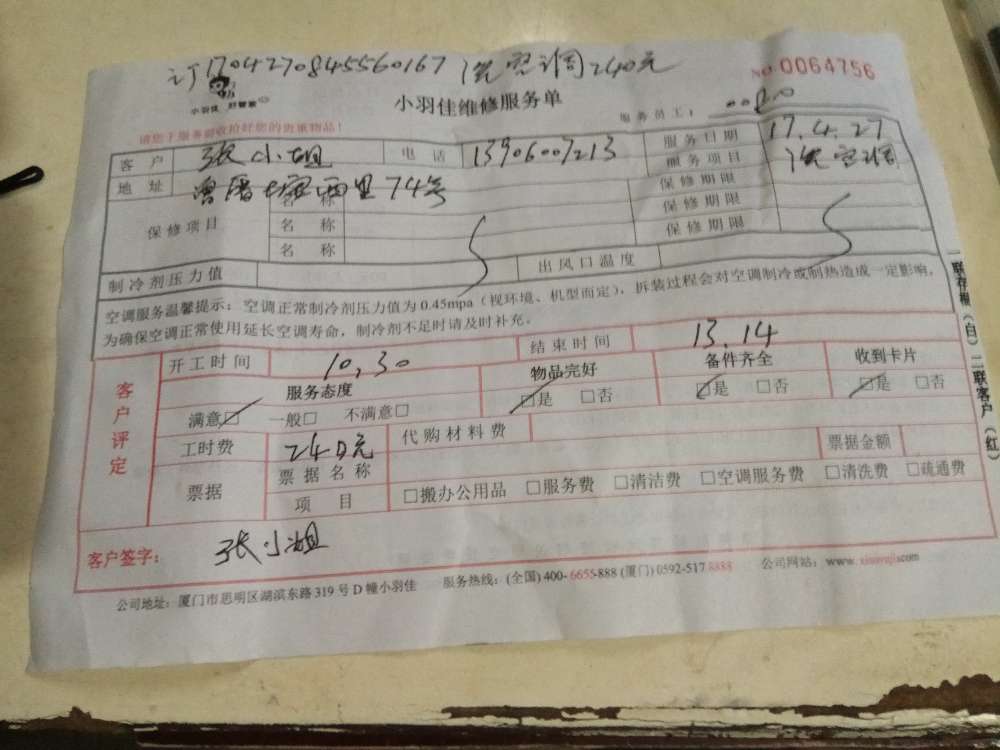 订1704270845560167 洗空调240元
NO 0064756
小羽佳 好管家
小羽佳维修服务单
服务员工:
请您于服务前收拾好您的贵重物品!
客户 张小姐 电话 13906007213 服务日期 17.4.27
地址 西里74号 服务项目 洗空调
保修项目 名称 保修期限
名称 保修期限
名称 保修期限
制冷剂压力值 出风口温度
空调服务温馨提示:空调正常制冷剂压力值为0.45mpa(视环境、机型而定),拆装过程会对空调制冷或制热造成一定影响,
为确保空调正常使用延长空调寿命,制冷剂不足时请及时补充。
一联存根(白)二联客户(红)
客户评定
开工时间 10.30 结束时间 13.14
服务态度 物品完好 备件齐全 收到卡片
满意□ 一般□ 不满意□ □是 □否 □是 □否 □是 □否
工时费 240元 代购材料费 票据金额
票据 票据名称
项目 □搬办公用品 □服务费 □清洁费 □空调服务费 □清洗费 □疏通费
客户签字: 张小姐
公司地址:厦门市思明区湖滨东路319号D幢小羽佳 服务热线:(全国)400-6655-888(厦门)0592-5178888 公司网站:www.xiaoyujia.com